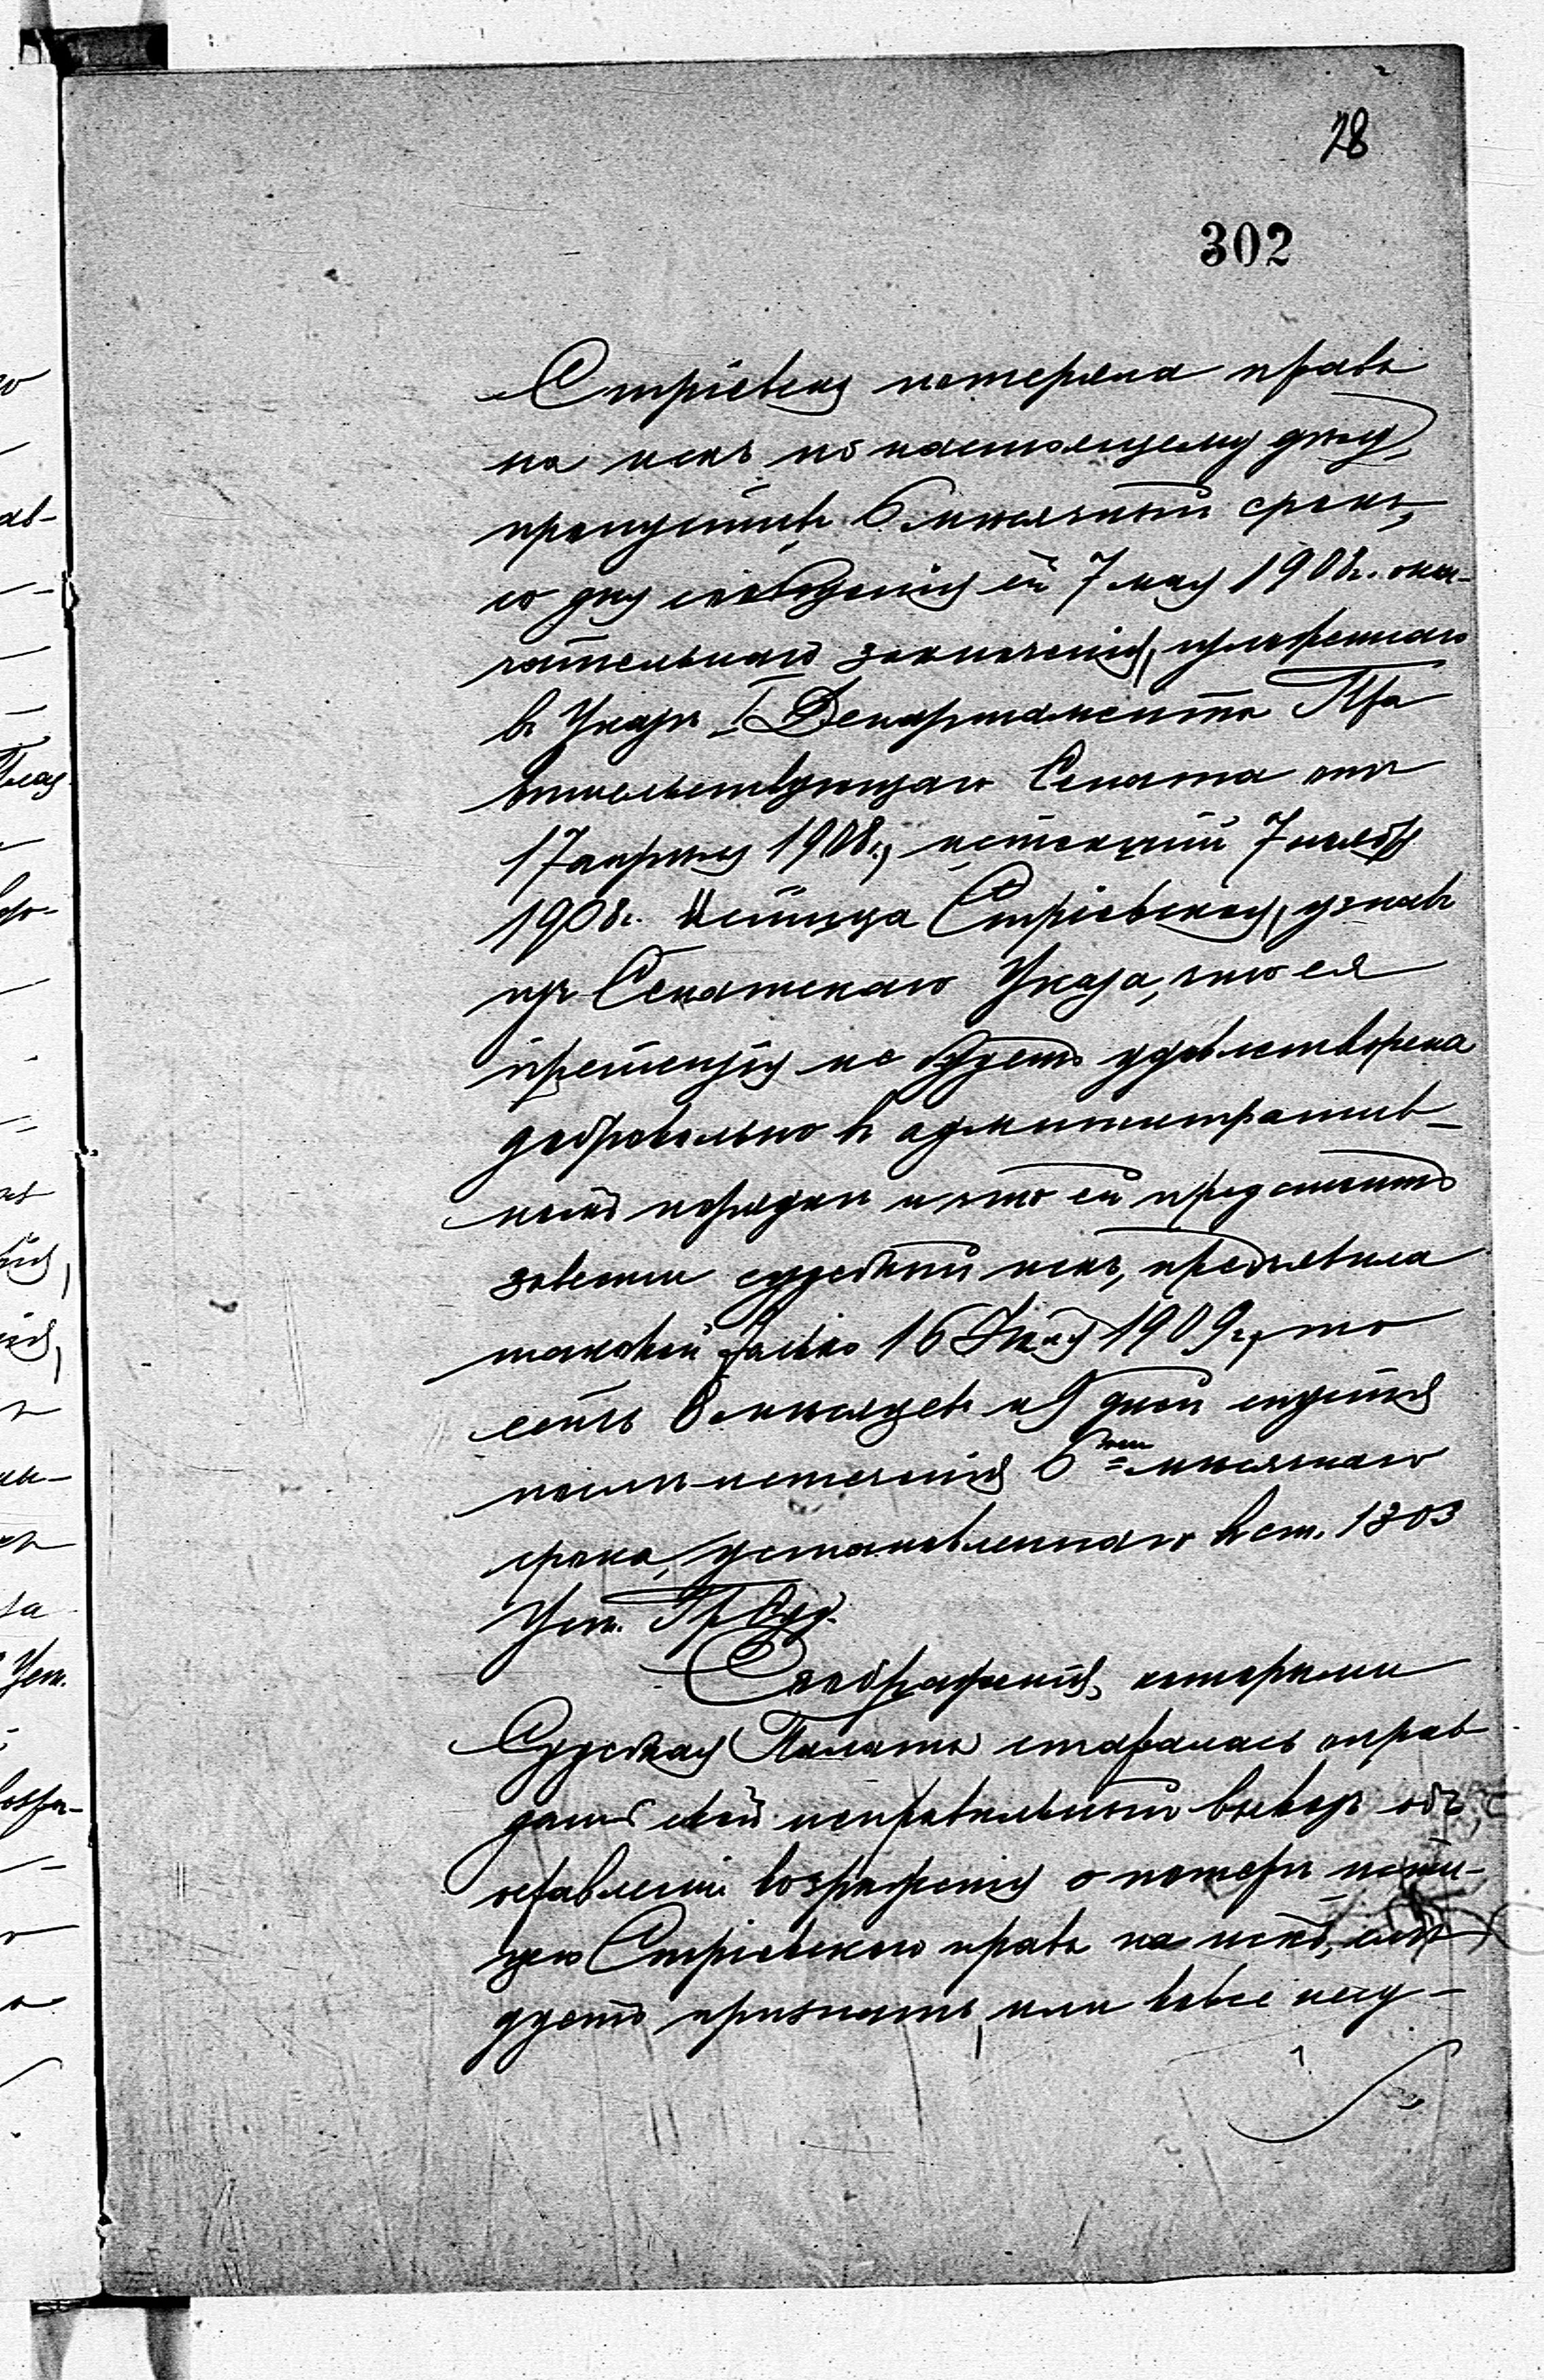 28
302
Стріевская потеряла право
на искъ по настоящему дѣлу,
пропустивъ 6 мѣсячный срокъ,
со дня сообщенія ей 7 мая 1908 г. окон-
чательнаго заключенія, изложеннаго
въ Указѣ I Департамента Пра
вительствующаго Сената отъ
17 апрѣля 1908 г., истекшій 7 ноября
1908 г. Истица Стріевская, узнавъ
изъ Сенатскаго Указа, что ея
претензія не будетъ удовлетворена
добровольно въ административ-
номъ порядкѣ и что ей предстоитъ
завести судебный искъ, предъявила
таковой только 16 Іюля 1909 г., то
есть 8 мѣсяцевъ и 9 дней спустя
послѣ истеченія 6ти мѣсячнаго
срока, установленнаго въ ст. 1303
Уст. Гр. Суд.
Соображенія, которыми
Судебная Палата старалась оправ
дать свой неправильный выводъ объ
оставленіи возраженія о потерѣ исти-
цею Стріевскою права на искъ, слѣ
дуетъ признать, или вовсе несу-